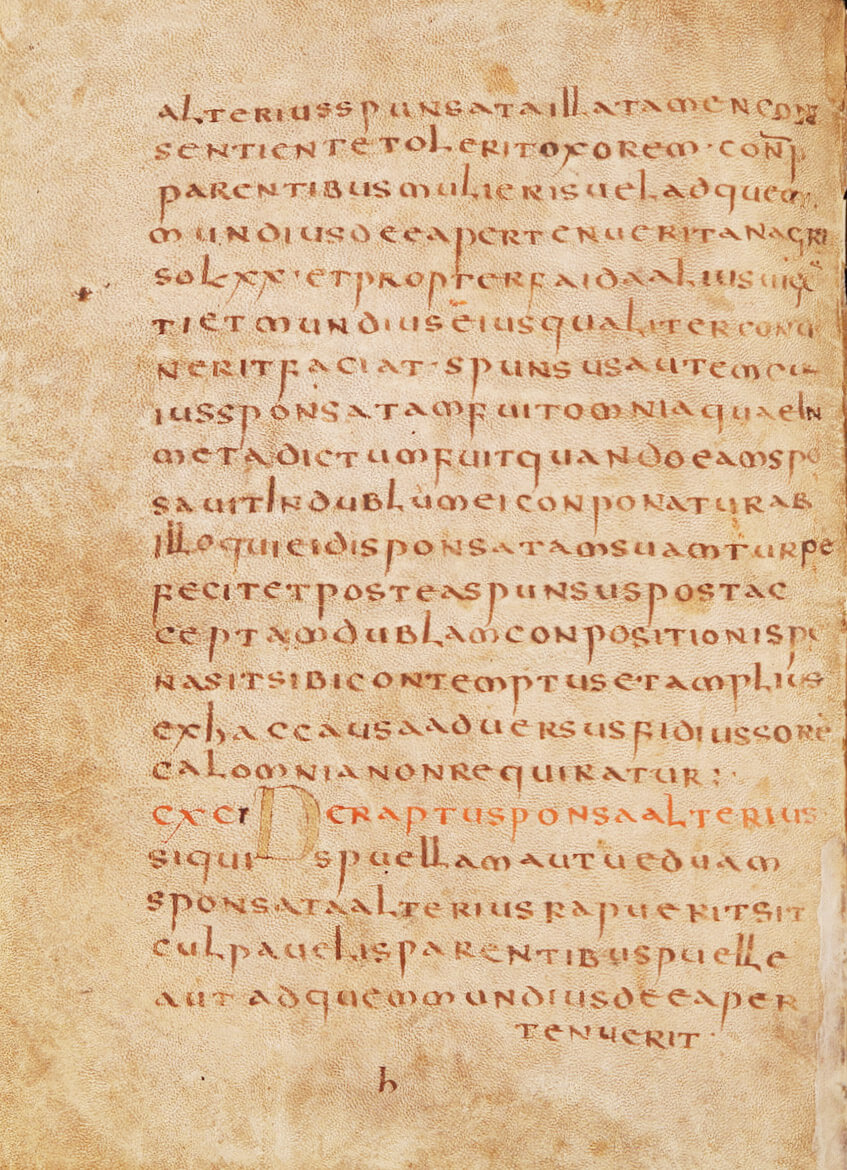 alterius spunsata illa tamen con
sentiente tolerit oxorem · conp
parentibus mulieris uel ad quem
mundius de ea pertenuerit anagri
sol xx · et propter faida alius uigi
ti et mundius eius qualiter conue
nerit faciat · spunsus autem cu
ius sponsata m fuit omnia quae in
meta dictum fuit quando eam spo
sauit in dublum ei conponatur ab
illo qui ei disponsatam suam turpe
fecit et postea spunsus post ac
ceptam dublam conpositionis pe
na sit sibi contemptus et amplius
ex hac causa aduersus fidiussore
calomnia non requiratur :·
cxci De raptu sponsa alterius
si quis puellam autueduam
sponsata alterius rapuerit sit
culpauelis parentibus puelle
aut ad quem mundius de ea per
tenuerit ·
h